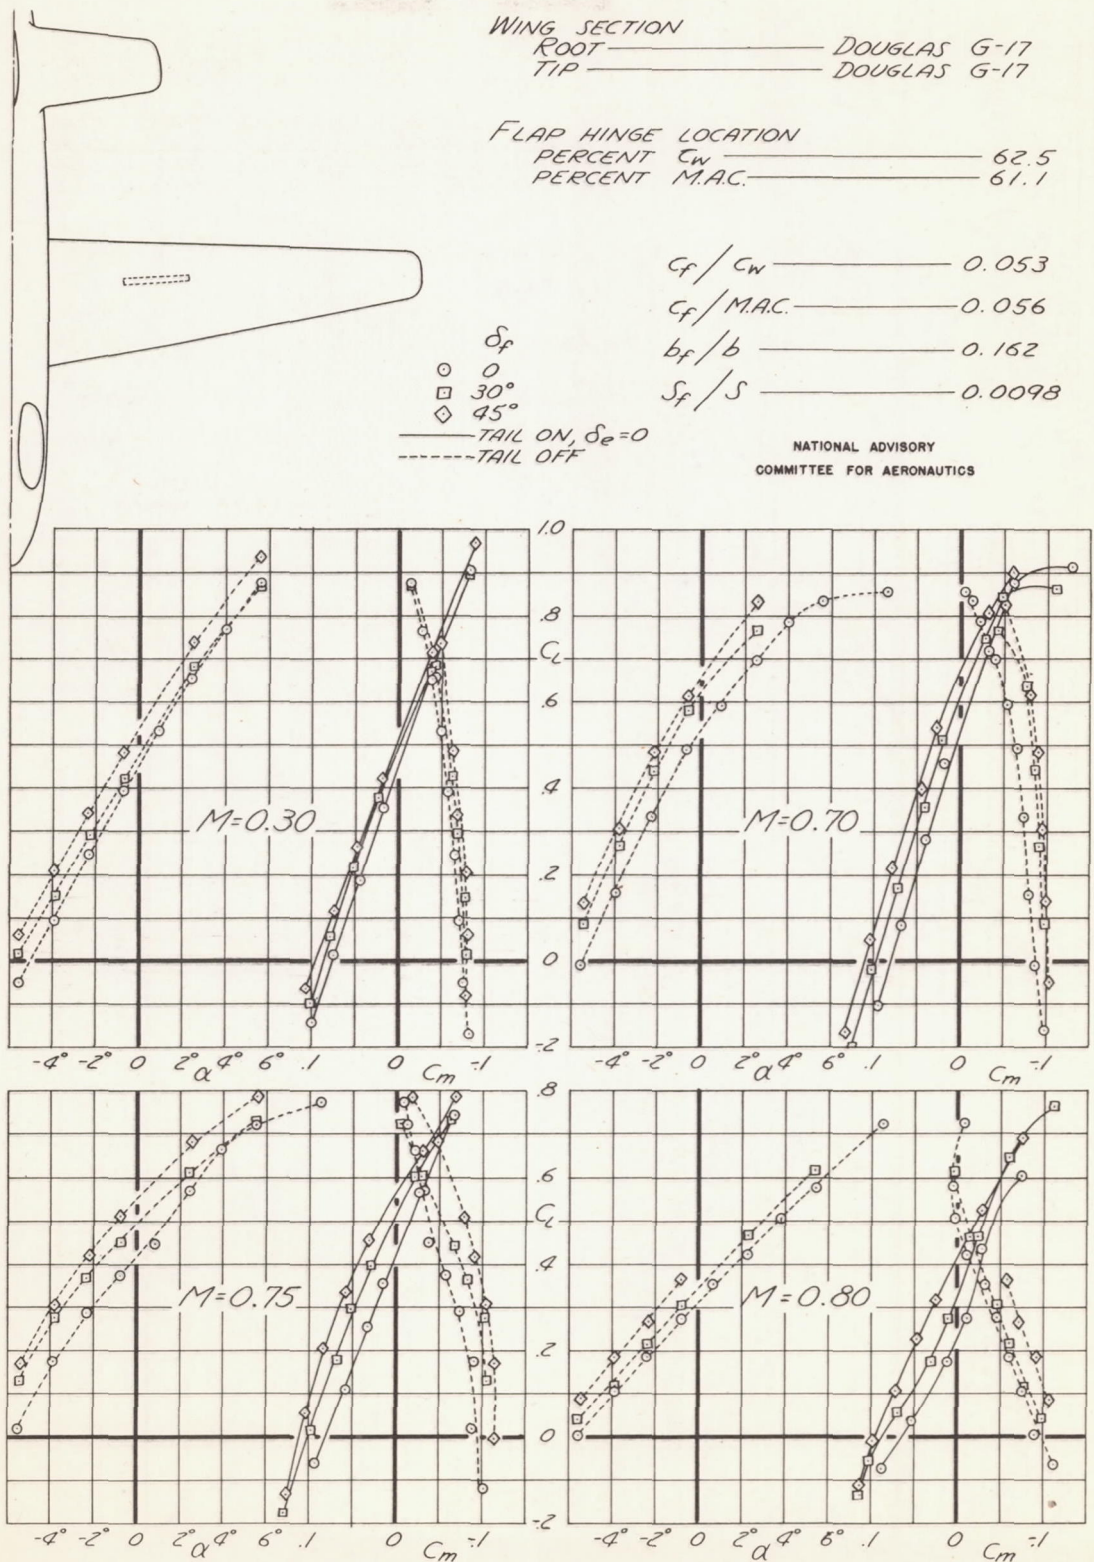 WING SECTION
ROOT DOUGLAS G-17
TIP DOUGLAS G-17
FLAP HINGE LOCATION
PERCENT Cw 62.5
PERCENT M.A.C. 61.1
cf/cw 0.053
cf/M.A.C. 0.056
bf/b 0.162
Sf/S 0.0098
δf
0
30°
45°
TAIL ON, δe=0
TAIL OFF
NATIONAL ADVISORY
COMMITTEE FOR AERONAUTICS
1.0
.8
CL
.6
.4
M=0.30
M=0.70
.2
0
-.2
-4° -2° 0 2° 4° 6° .1 0 -.1
α Cm
-4° -2° 0 2° 4° 6° .1 0 -.1
α Cm
.8
.6
CL
.4
M=0.75
M=0.80
.2
0
-.2
-4° -2° 0 2° 4° 6° .1 0 -.1
α Cm
-4° -2° 0 2° 4° 6° .1 0 -.1
α Cm